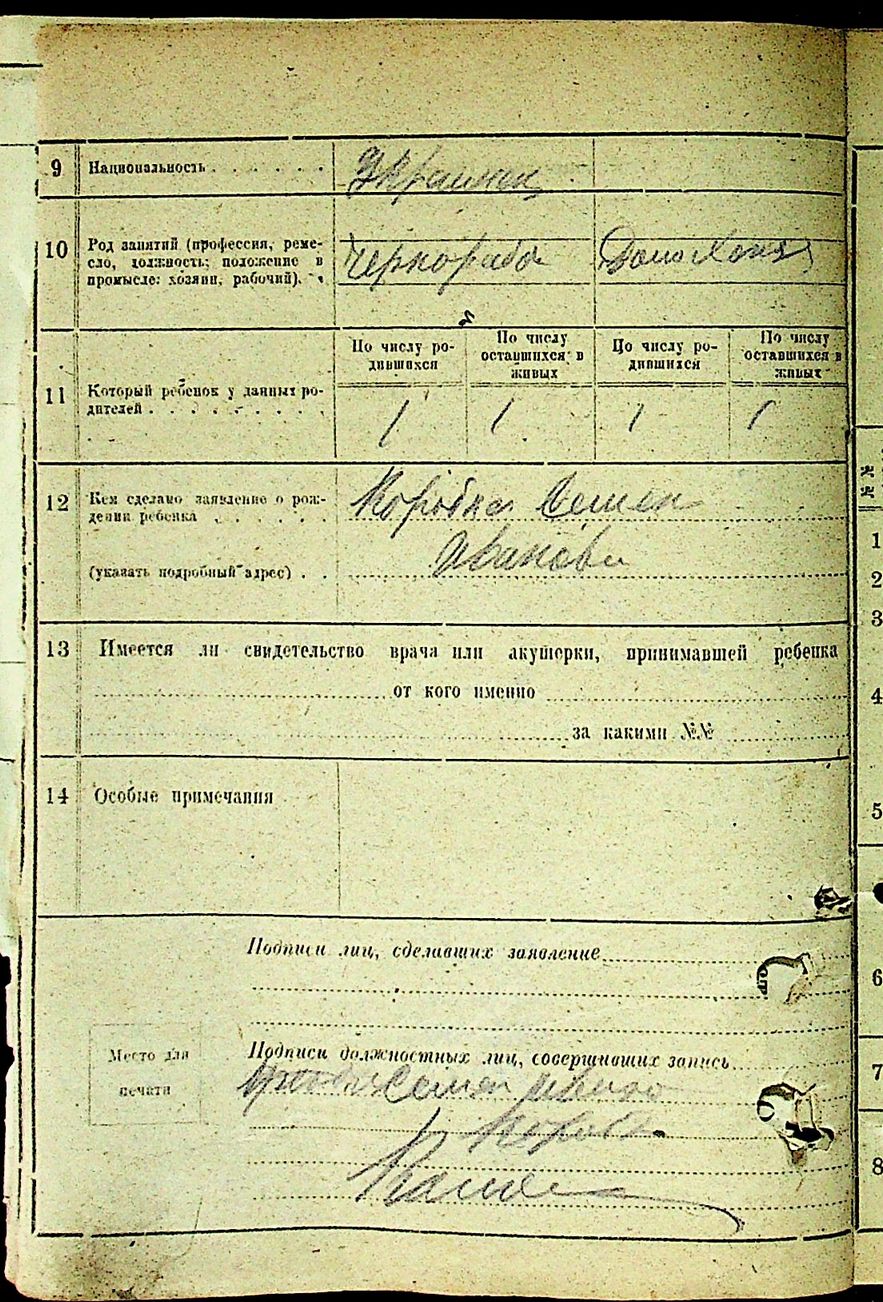 9 Национальность . . . . . . Украинец
10 Род занятий (профессия, реме-
сло, должность; положение в
промысле: хозяин, рабочий). Чернорабо Домохоз
По числу ро-
дившихся
По числу
оставшихся в
живых
По числу ро-
дившихся
По числу
оставшихся в
живых
11 Который ребенок у данных ро-
дителей . . . . . . . . 1 1 1 1
12 Кем сделано заявление о рож-
дении ребенка . . . . . . Коробка Семен
Иванови
(указать подробный адрес) . .
13 Имеется ли свидетельство врача или акушерки, принимавшей ребенка
от кого именно
за какими №№
14 Особые примечания
Подписи лиц, сделавших заявление
Место для
печати
Подписи должностных лиц, совершивших запись
Семен Ивано
№№
1
2
3
4
5
6
7
8